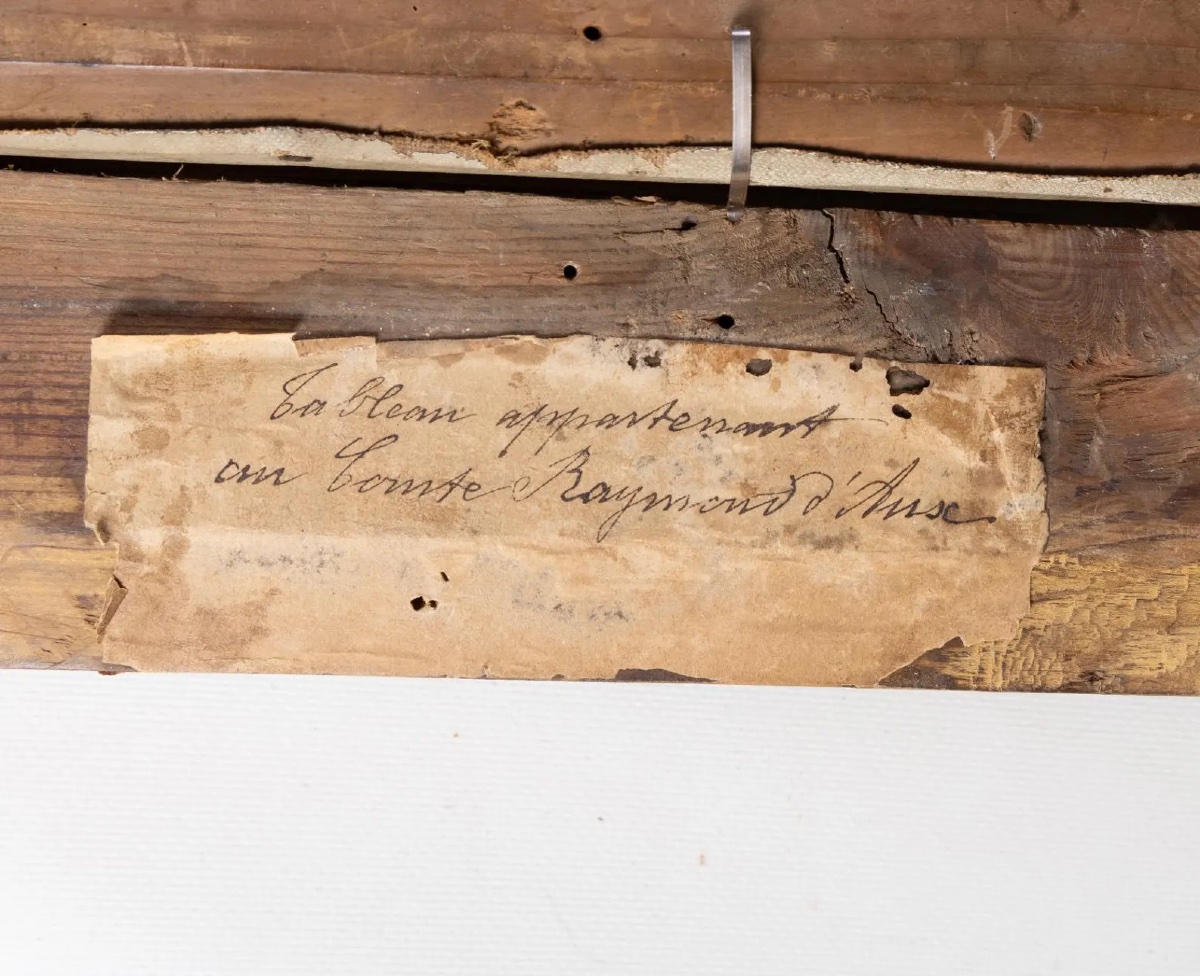 Tableau appartenant
au Comte Raymond d'Aux